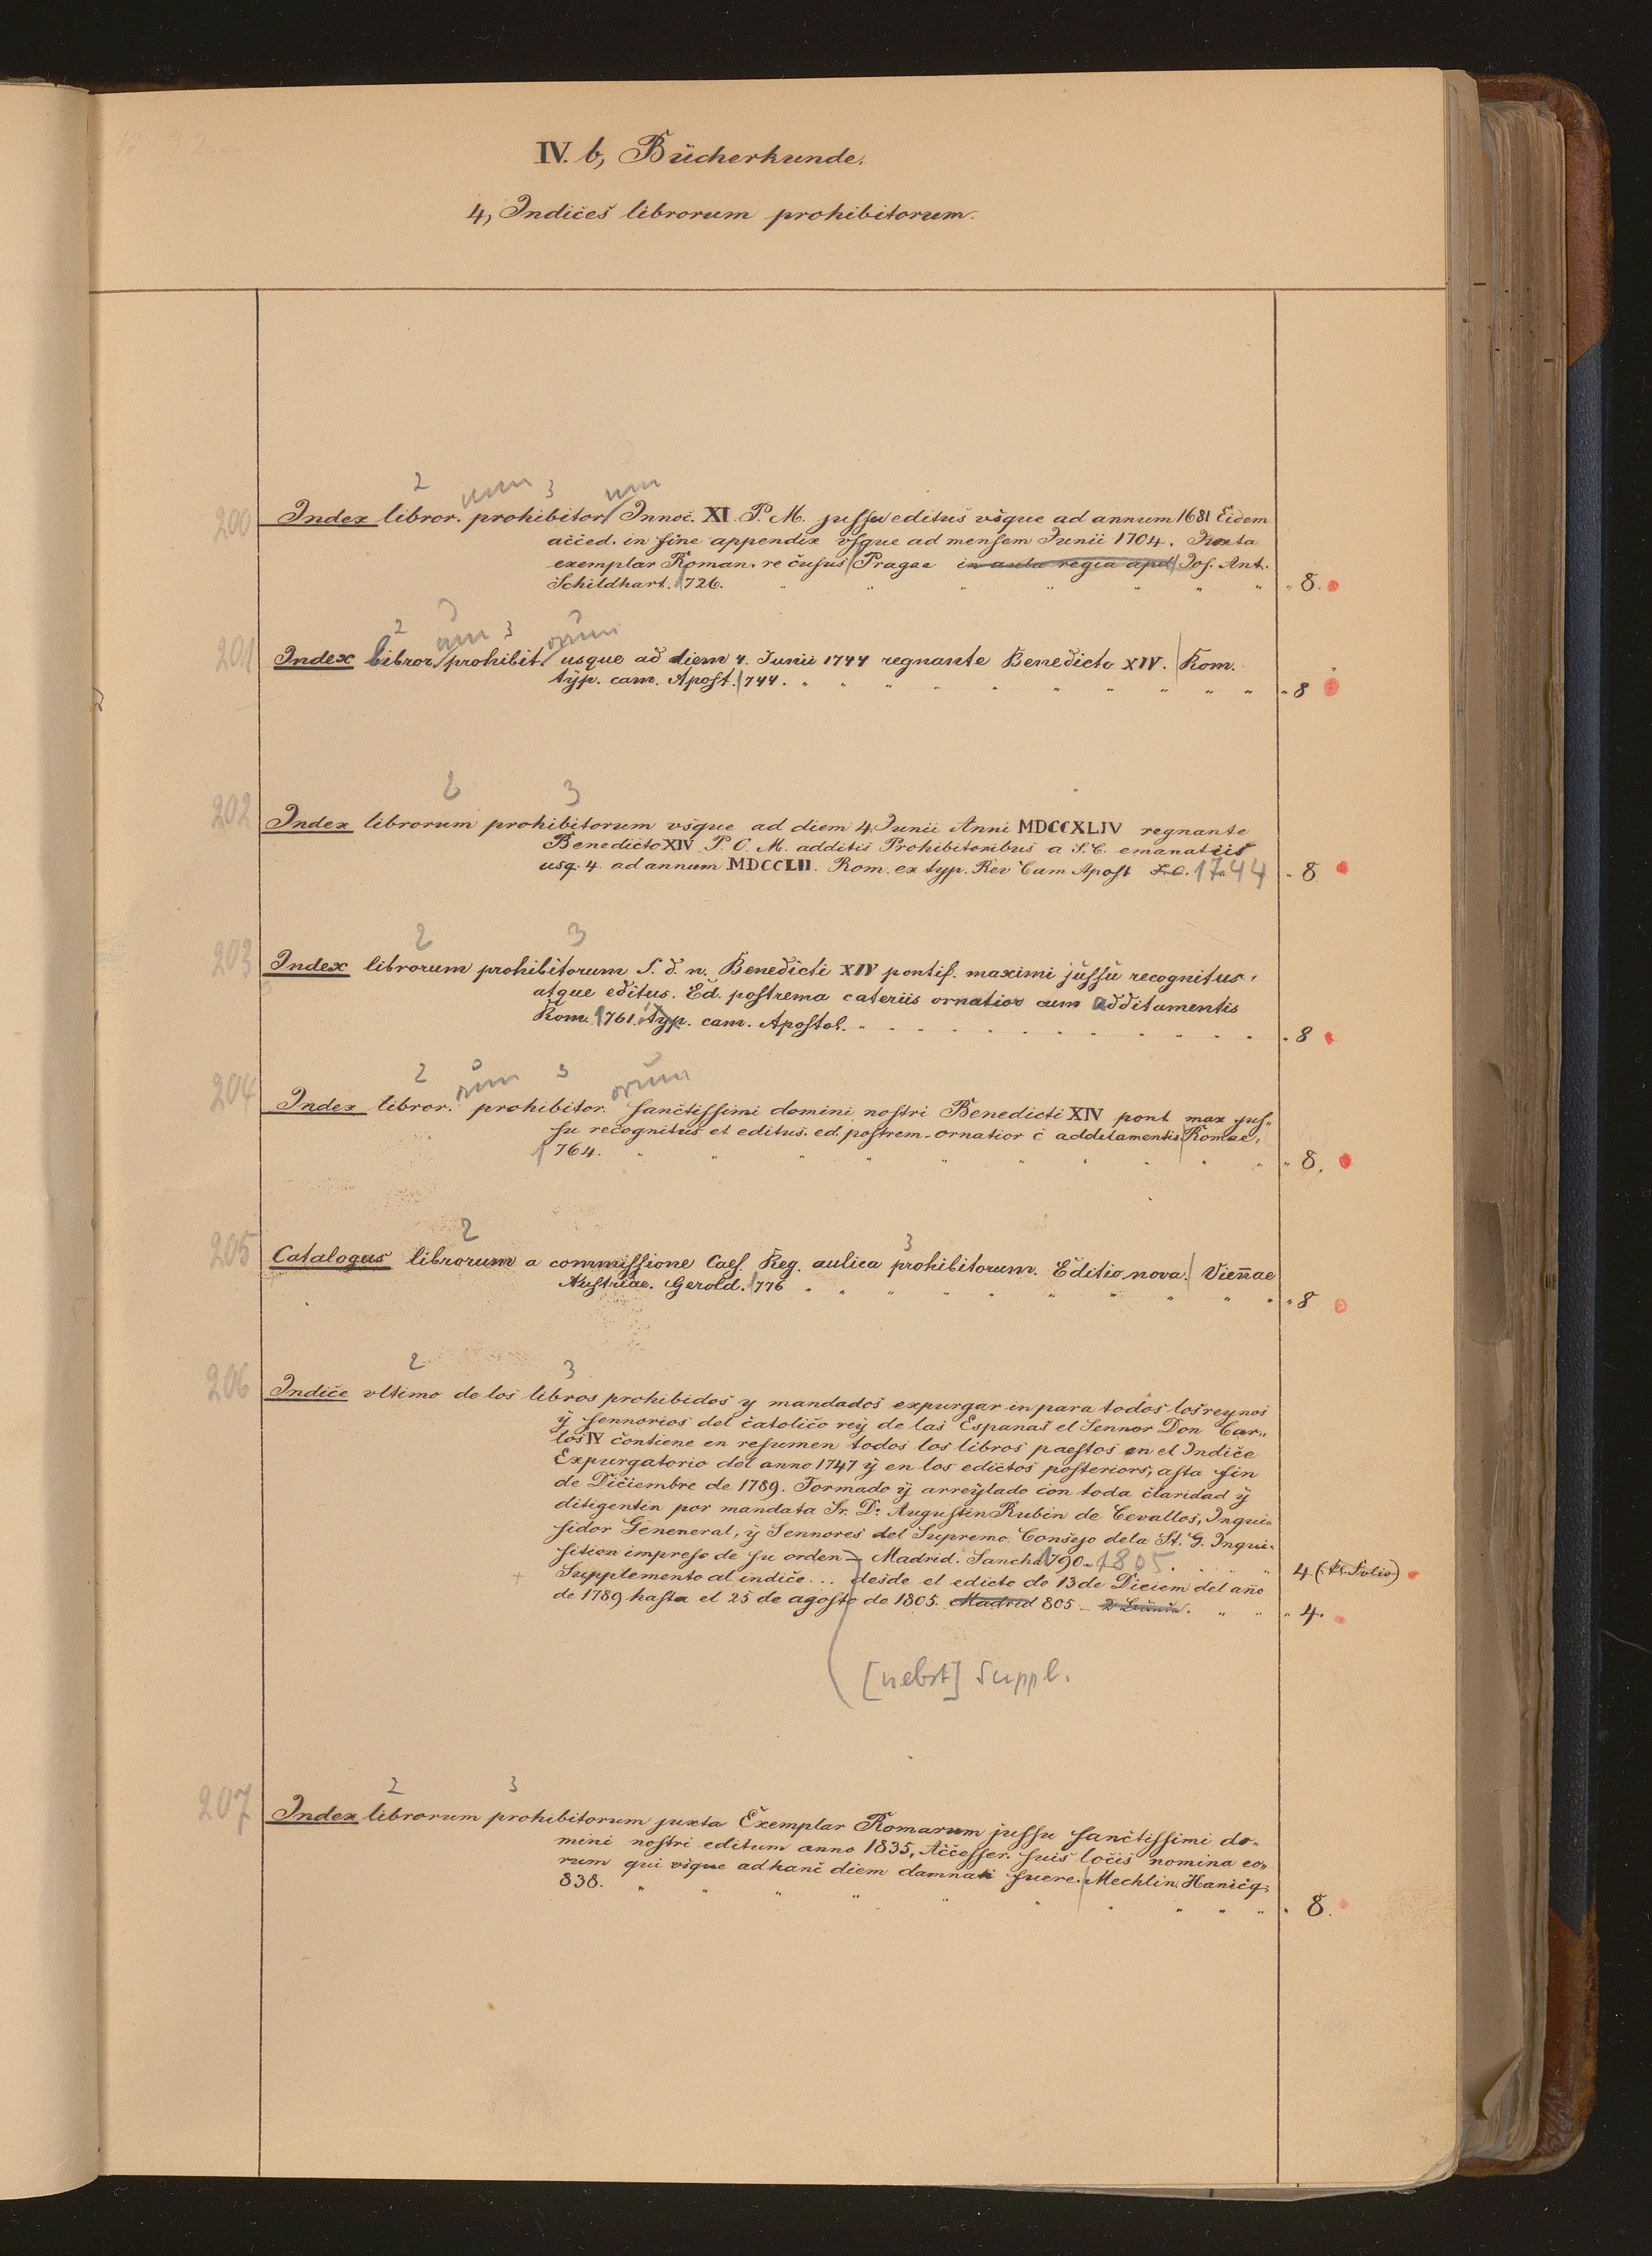 IV. b, Bücherkunde.
4, Indices librorum prohibitorum.
2 3
200 Index libror. prohibitor. Innoc. XI. P. M. jussu editus vsque ad annum 1681 Eidem
acced. in fine appendix vsque ad mensem Junii 1704. Juxta
exemplar Roman. re cusus Pragae in aula regia apd Jos. Ant.
Schildhart. 1726. " 8.
2 um 3 orum
201 Index libror. prohibit. usque ad diem 4. Junii 1744 regnante Benedicto XIV. Rom.
typ. cam. Apost. 1744. " 8
2 3
202 Index librorum prohibitorum vsque ad diem 4. Junii Anni MDCCXLIV regnante
Benedicto XIV P. O. M. additis Prohibitoribus a S. C. emanatiis
usq. 4. ad annum MDCCLII. Rom. ex typ. Rev Cam Apost 1744 " 8.
2 3
203 Index librorum prohibitorum S. d. n. Benedicti XIV pontif. maximi jussu recognitus
atque editus. Ed. postrema cateriis ornatior cum additamentis
Rom. 1761. typ. cam. Apostol. " 8
2 rum 3 orum
204 Index libror. prohibitor. sanctissimi domini nostri Benedicti XIV pont max jus"
su recognitus et editus. ed. postrem. ornatior c additamentis Romae,
1764. " 8.
2 3
205 Catalogus librorum a commissione Caes. Reg. aulica prohibitorum. Editio nova. Vieñae
Austriae. Gerold. 1776 " 8
2 3
206 Indice vltimo de los libros prohibidos y mandados expurgar in para todos los reynos
ÿ sennorios del catolico rey de las Espanas el Sennor Don Car"
los IV contiene en resumen todos los libros paestos en el Indice
Expurgatorio del anno 1747 ÿ en los edictos posteriors, asta fin
de Diciembre de 1789. Formado ÿ arreÿlado con toda claridad ÿ
ditigentin por mandata Sr. Dr. Augustin Rubin de Cevallos, Inqui"
sidor Geneneral, ÿ Sennores del Supremo Consejo dela St. G. Inqui"
sition impreso de su orden – Madrid. Sancha 1790 - 1805. 4 (Kl. Folio)
+ Supplemento al indice ... desde el edicto de 13 de Diciem del año
de 1789 hasta el 25 de agosto de 1805. Madrid 805 – " 4.
[nebst] Suppl.
2 3
207 Index librorum prohibitorum juxta Exemplar Romarum jussu sanctissimi do"
mini nostri editum anno 1835, Accesser. suis locis nomina eo"
rum qui vsque ad hanc diem damnati fuere. Mechlin. Hanicq.
838. " 8.